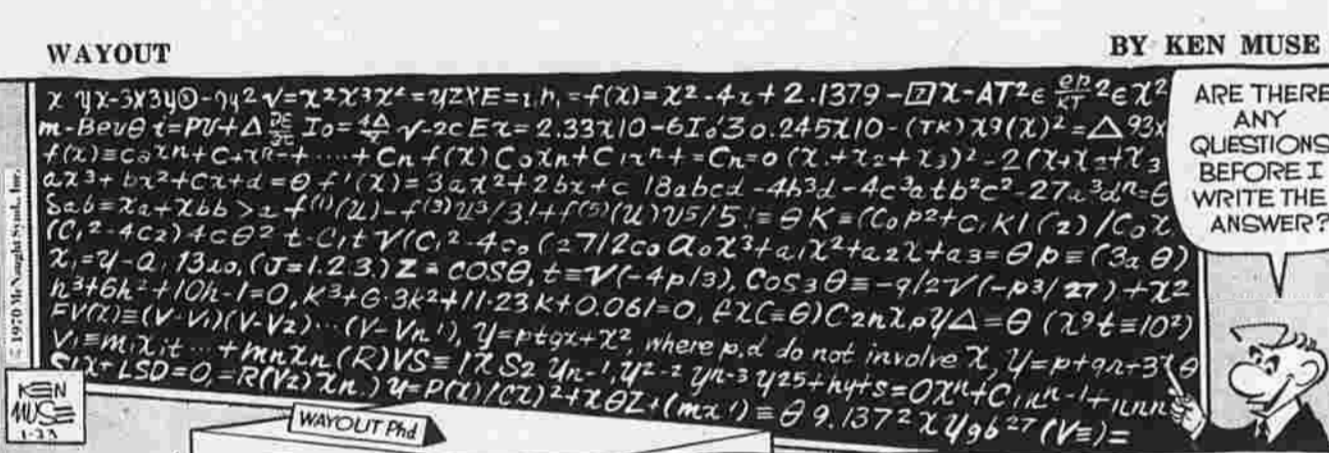 WAYOUT
BY KEN MUSE
x yx-3x3y-9y2 √=x2x3x4=yZXE=1.h,=f(x)=x2-4x+2.1379-x-AT2∈ ep/KT 2∈x2
m-Bevθ i=PV+Δ Io= √-2c Ex=2.33x10-6Io'30.245x10-(TK)x9(x)2=Δ93x
f(x)≡coxn+C+xn-+....+Cn f(x)Coxn+C1xn+=Cn=0 (x+x2+x3)2-2(x+x2+x3
ax3+bx2+cx+d=θ f'(x)=3ax2+2bx+c 18abcd-4b3d-4c3a+b2c2-27a3dn=θ
Sab=xa+xbb>2 f(1)(U)-f(3)U3/3!+f(5)(U)U5/5!=θ K=(Cop2+C,K1(2)/Cox
(C,2-4C2)4cθ2 t-C,t√(C,2-4co(27/2co aox3+a,x2+a2x+a3=θ p≡(3a θ)
x,=y-a, 1320,(J=1.2.3.) Z=COSθ, t≡√(-4p/3), COS3θ≡-9/2√(-p3/27)+x2
h3+6h2+10h-1=0, K3+6.3k2+11.23K+0.061=0, fx(=θ)C2nx,pyΔ=θ (x9t≡102)
FV(x)≡(V-V1)(V-V2)...(V-Vn'), y=p+qx+x2, where p,d do not involve x, y=p+qn+3xθ
V1≡m,x,t...+mnxn(R)VS≡1xS2 Yn-',y2-2 yn-3 y25+hy+s=Oxn+C,nn-1+nnn
S1x+LSD=0,=R(V2)xn.) y=P(x)/Cx)2+xθZ+(mx')≡θ 9.1372xy9b27(V≡)=
ARE THERE
ANY
QUESTIONS
BEFORE I
WRITE THE
ANSWER?
© 1970 McNaught Synd., Inc.
KEN
MUSE
1-23
WAYOUT Phd